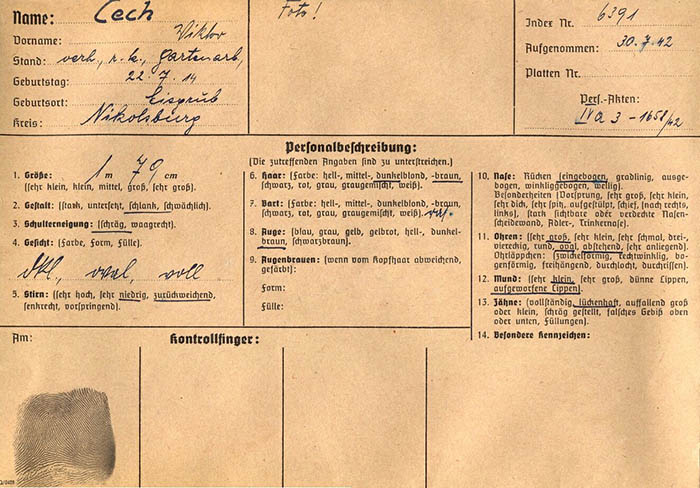 Name: Čech
Foto!
Index Nr. 6391
Vorname: Viktor
Aufgenommen: 30.7.42
Stand: verh., r.k., Gartenarb.
Platten Nr.
Geburtstag: 22.7.14
Pers.-Akten:
Geburtsort: Eisgrub
IV a 3 - 1658/42
Kreis: Nikolsburg
Personalbeschreibung:
(Die zutreffenden Angaben sind zu unterstreichen.)
1. Größe: 1 m 79 cm
(sehr klein, klein, mittel, groß, sehr groß).
2. Gestalt: (stark, untersetzt, schlank, schwächlich).
3. Schulterneigung: (schräg, waagrecht).
4. Gesicht: (Farbe, Form, Fülle).
dkl., oval, voll
5. Stirn: (sehr hoch, sehr niedrig, zurückweichend,
senkrecht, vorspringend).
6. Haar: (Farbe: hell-, mittel-, dunkelblond, -braun,
schwarz, rot, grau, graugemischt, weiß).
7. Bart: (Farbe: hell-, mittel-, dunkelblond, -braun,
schwarz, rot, grau, graugemischt, weiß).
8. Auge: (blau, grau, gelb, gelbrot, hell-, dunkel-
braun, schwarzbraun).
9. Augenbrauen: (wenn vom Kopfhaar abweichend,
gefärbt):
Form:
Fülle:
10. Nase: Rücken (eingebogen, gradlinig, ausge-
bogen, winkliggebogen, wellig).
Besonderheiten (Vorsprung, sehr groß, sehr klein,
sehr dick, sehr spitz, aufgestülpt, schief, [nach rechts,
links], stark sichtbare oder verdeckte Nasen-
scheidewand, Adler-, Trinkernase).
11. Ohren: (sehr groß, sehr klein, sehr schmal, drei-
viereckig, rund, oval, abstehend, sehr anliegend).
Ohrläppchen: (zwickelförmig, rechtwinklig, bo-
genförmig, freihängend, durchlocht, durchrissen).
12. Mund: (sehr klein, sehr groß, dünne Lippen,
aufgeworfene Lippen).
13. Zähne: (vollständig, lückenhaft, auffallend groß
oder klein, schräg gestellt, falsches Gebiß oben
oder unten, Füllungen).
14. Besondere Kennzeichen:
Am:
Kontrollfinger: